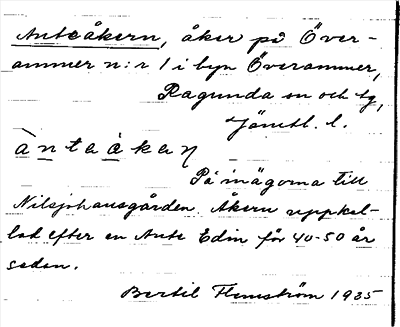 Anteåkern, åker på Över-
ammer n:r 1 i byn Överammer,
Ragunda sn och tg,
Jämtl. l.
ànteåkaɳ
På inägorna till
Nilsjohansgården. Åkern uppkal-
lad efter en Ante Edin för 40-50 år
sedan.
Bertil Flemström 1935